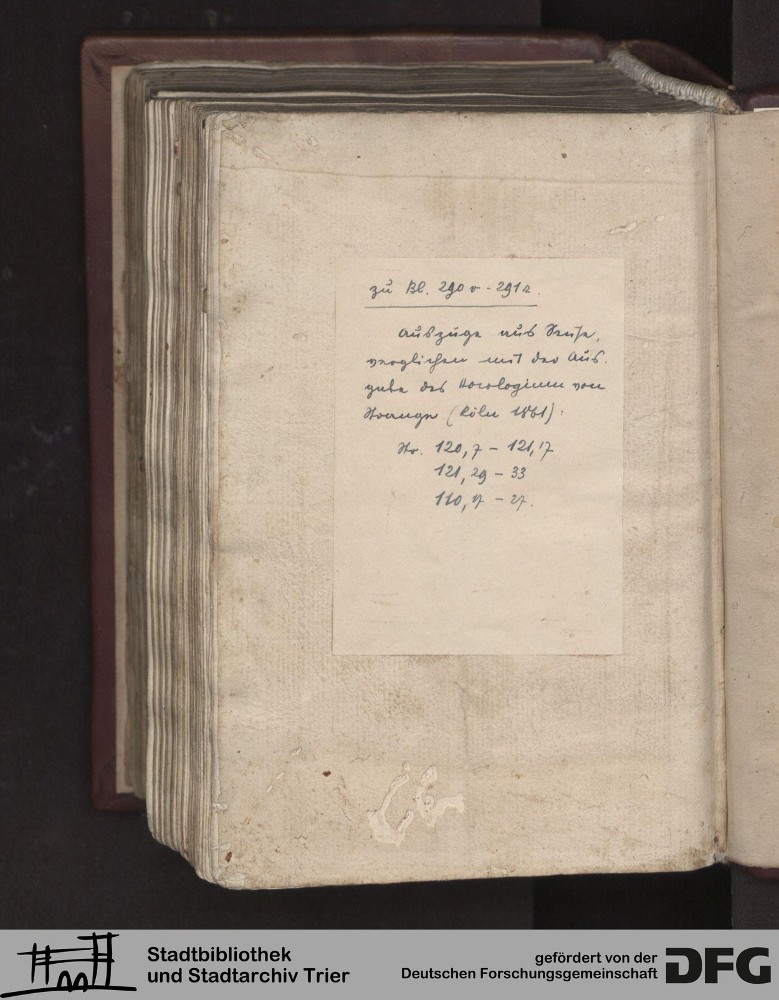 zu Bl. 290 v - 291 r.
Auszüge aus Seuse,
verglichen mit der Aus-
gabe des Horologium von
Strange (Köln 1861):
Str. 120, 7 - 121, 17
121, 29 - 33
110, 17 - 27.
Stadtbibliothek
und Stadtarchiv Trier
gefördert von der
Deutschen Forschungsgemeinschaft
DFG